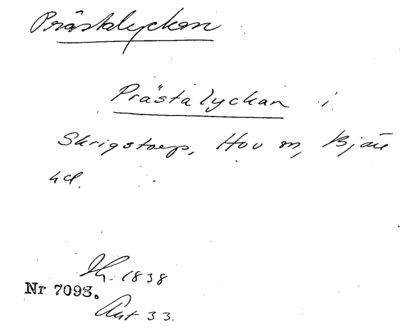 Prästlyckan
Prästalyckan i
Skrigstorp, Hov sn, Bjäre
hd.
Nr 7093.
1838
Akt 33.